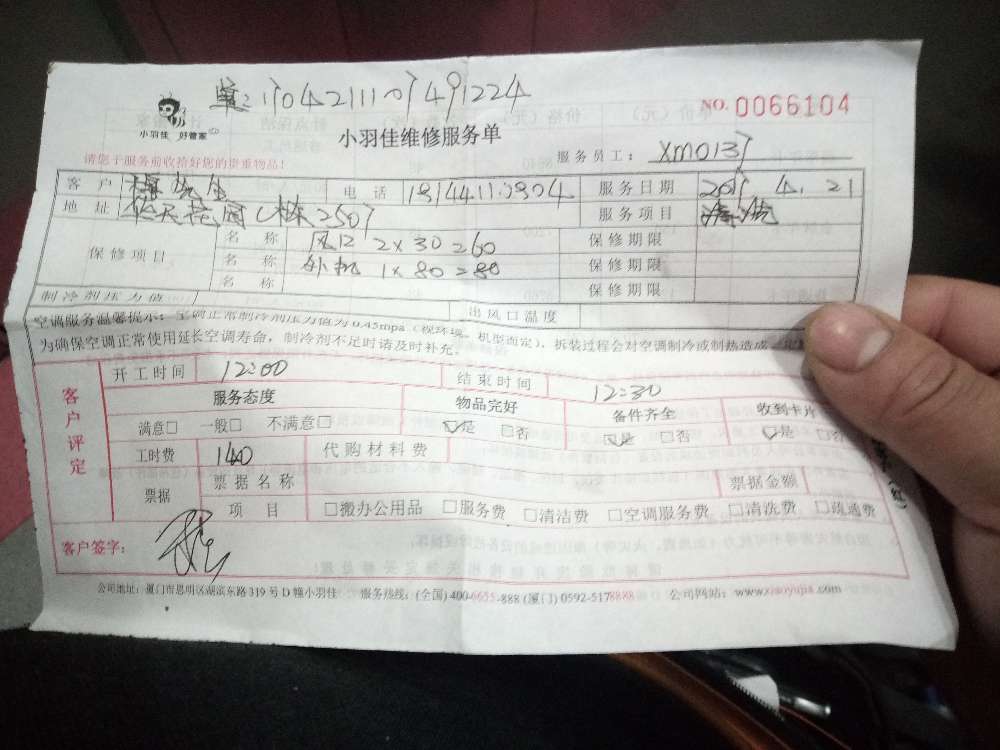 单:1704211107491224
NO. 0066104
小羽佳 好管家
小羽佳维修服务单
请您于服务前收拾好您的贵重物品!
服务员工: XM0137
客户 电话 服务日期 2017.4.21
地址 花园C栋2507 服务项目 清洗
保修项目 名称 风口 2×30=60 保修期限
名称 外机 1×80=80 保修期限
名称 保修期限
制冷剂压力值 出风口温度
空调服务温馨提示:空调正常制冷剂压力值为0.45mpa(视环境、机型而定),拆装过程会对空调制冷或制热造成一定
为确保空调正常使用延长空调寿命,制冷剂不足时请及时补充。
客户评定 开工时间 12:00 结束时间 12:30
服务态度 物品完好 备件齐全 收到卡片
满意□ 一般□ 不满意□ ☑是 □否 ☑是 □否 ☑是 □否
工时费 140 代购材料费
票据 票据名称 票据金额
项目 □搬办公用品 □服务费 □清洁费 □空调服务费 □清洗费 □疏通费
客户签字:
公司地址:厦门市思明区湖滨东路319号D幢小羽佳 服务热线:(全国)400-6655-888 (厦门)0592-5178888 公司网站:www.xiaoyujia.com